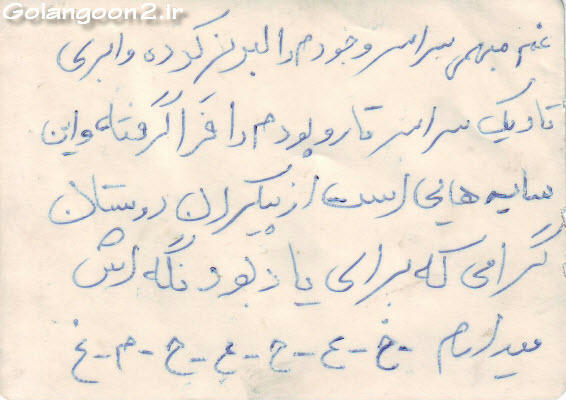 Golangoon2.ir
غم مبهمی سراسر وجودم را لبریز کرده و ابری
تاریک سراسر تار و پودم را فرا گرفته و این
سایه هایی است از پیکران دوستان
گرامی که برای یادبود نگه اش
میدارم -خ-ع-ح-ع-ح-م-غ